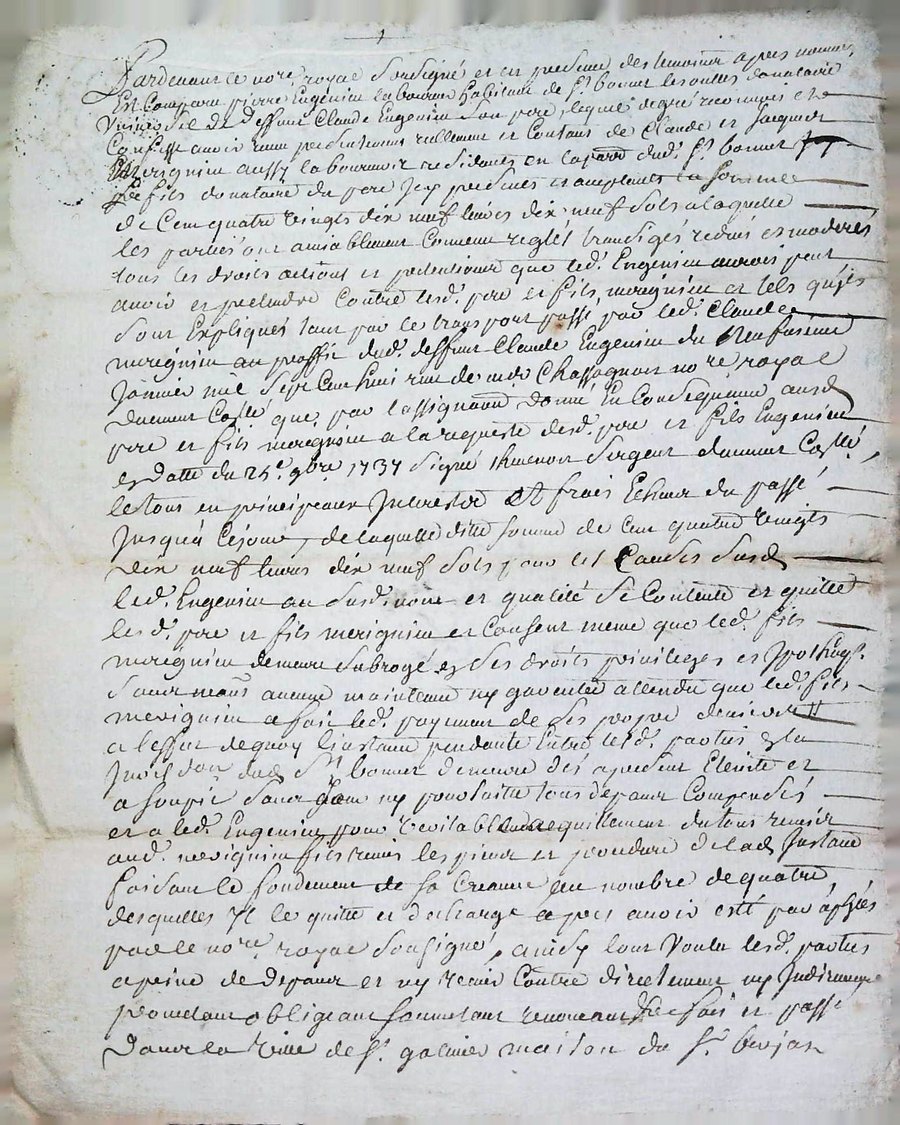 Pardevant le nore. royal Soussigné et en presence des temoins apres nommes
Est Comparu pierre Eugenim laboureur habitant de St. bonnet les oulles donataire
Universel de deffunt Claude Eugenim Son pere, lequel de gré reconnois et
Confesse avoir reçeu presentement reellement et Contant de Claude et Jacques
Merignim aussy laboureur residants en laparoe. dud. St. bonnet
Le fils donataire du pere Icy presents et acceptants la Somme
de Cent quatre Vingts dix neuf livres dix neuf Sols a laquelle
les parties ont amiablement Convenu reglés transigés redui et moderés
tous les droits actions et pretentions que led. Eugenim auroit peut
avoir et pretendre Contre lesd. pere et fils merignim et tels qu'ils
Sont Expliqués tant par le transport passé par led. Claude
merignim au proffit dud. deffunt Claude Eugenim du Neufvieme
Janvier mil Sept Cent huit reçu de me Chassagnon nore royal
duement Collé. que par lassignaon donné En Consequence ausd.
pere et fils merignim a la requeste desd. pere et fils Eugenim
en Datte du 25e. 9bre. 1737 Signé thevenon Sergent duement Collé.,
le tous en principeaux Interests et frais Echeus du passé
Jusqu'a Cejour, de laquelle ditte Somme de Cent quatre Vingts
dix neuf livres dix neuf Sols pour les Causes Susd.
led. Eugenim au Susd. nom et qualité Se Contente et quitte
lesd. pere et fils merignim et Consent meme que led. fils
merignim demeure Subrogé en Ses droits privileges et Ipotheq.
Sans mains aucune maintenue ny garentie attendu que led. fils
merignim a fait led. payment de Ses propre deniers
a leffet dequoy Linstance pendante Entre lesd. parties en la
Juris don. dud. St. bonnet demeure dés apresent Eteinte et
assoupie Sans ny poursuitte tous depans Compensés
et a led. Eugenim pour Veritable acquittement du tous remis
aud. merignim fils les pieces et procedure de lad. Instance
faisant le fondement de Sa Creance au nombre de quatre
desquelles Il le quitte et decharge apres avoir esté par aphées
par le nore. royal Soussigné, ainsy lont Voulu lesd. parties
a peine de depans et ny Venir Contre directement ny Indirectement
promettant obligeant Soumettant renonceant fait et passé
dans la Ville de St. galmier maison du Sr.